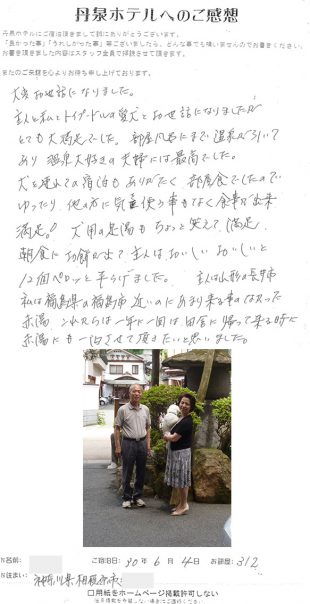 丹泉ホテルへのご感想
丹泉ホテルにご宿泊頂きまして誠にありがとうございます。
「良かった事」「うれしかった事」等ございましたら、どんな事でも構いませんのでお書きください。
お書き頂きました内容はスタッフ全員で拝読させて頂きます。
またのご来館を心よりお待ち申し上げております。
大変お世話になりました。
主人と私とトイプードルの愛犬とお世話になりましたが
とても大満足でした。部屋風呂にまで温泉が引いて
あり温泉大好きの夫婦には最高でした。
犬を連れての宿泊もありがたく、部屋食でしたので
ゆったり、他の方に気を使う事もなく食事が出来
満足。! 犬用の足湯もちょっと笑えて、満足
朝食に玉餅が出て主人は、おいしい おいしいと
12個ペロッと平らげました。 主人は山形の長井市
私は福島県の福島市 近いのにあまり来る事はなかった
赤湯 これからは一年に一回は田舎に帰って来る時に
赤湯にも一泊させて頂きたいと思いました。
N名前:
ご宿泊日: 30年 6月 4日 お部屋: 312
N住まい: 神奈川県相模原市
口用紙をホームページ掲載許可しない